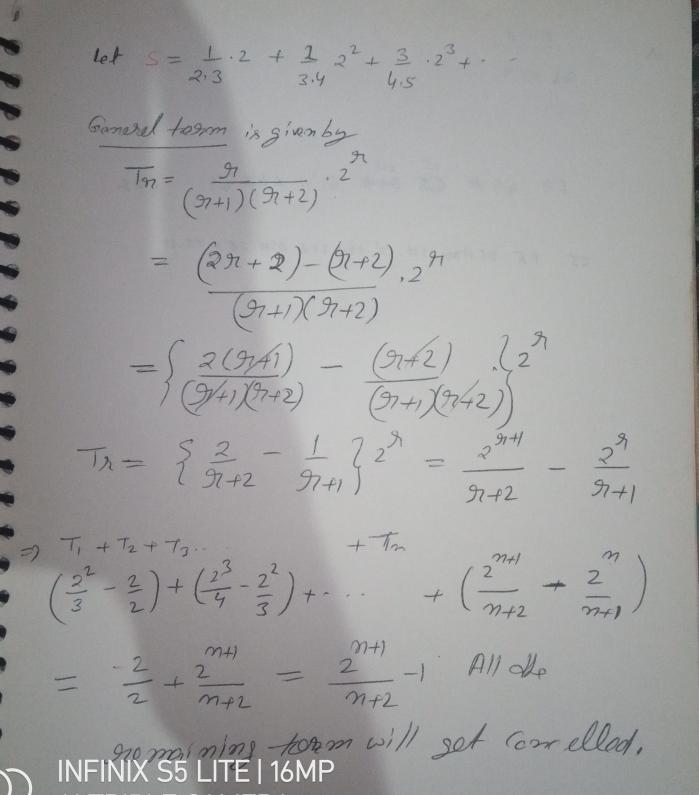 Let S = 1/2.3 · 2 + 2/3.4 2² + 3/4.5 · 2³ + · ·
General term is given by
Tr = r/(r+1)(r+2) · 2^r
= (2r + 2) - (r+2)/(r+1)(r+2) . 2^r
= { 2(r+1)/(r+1)(r+2) - (r+2)/(r+1)(r+2) } 2^r
Tr = { 2/r+2 - 1/r+1 } 2^r = 2^r+1/r+2 - 2^r/r+1
⇒ T₁ + T₂ + T₃ .. + Tn
(2²/3 - 2/2) + (2³/4 - 2²/3) + · · · · + (2^n+1/n+2 - 2^n/n+1)
= -2/2 + 2^n+1/n+2 = 2^n+1/n+2 - 1 All the
remaining term will get cancelled.
INFINIX S5 LITE | 16MP